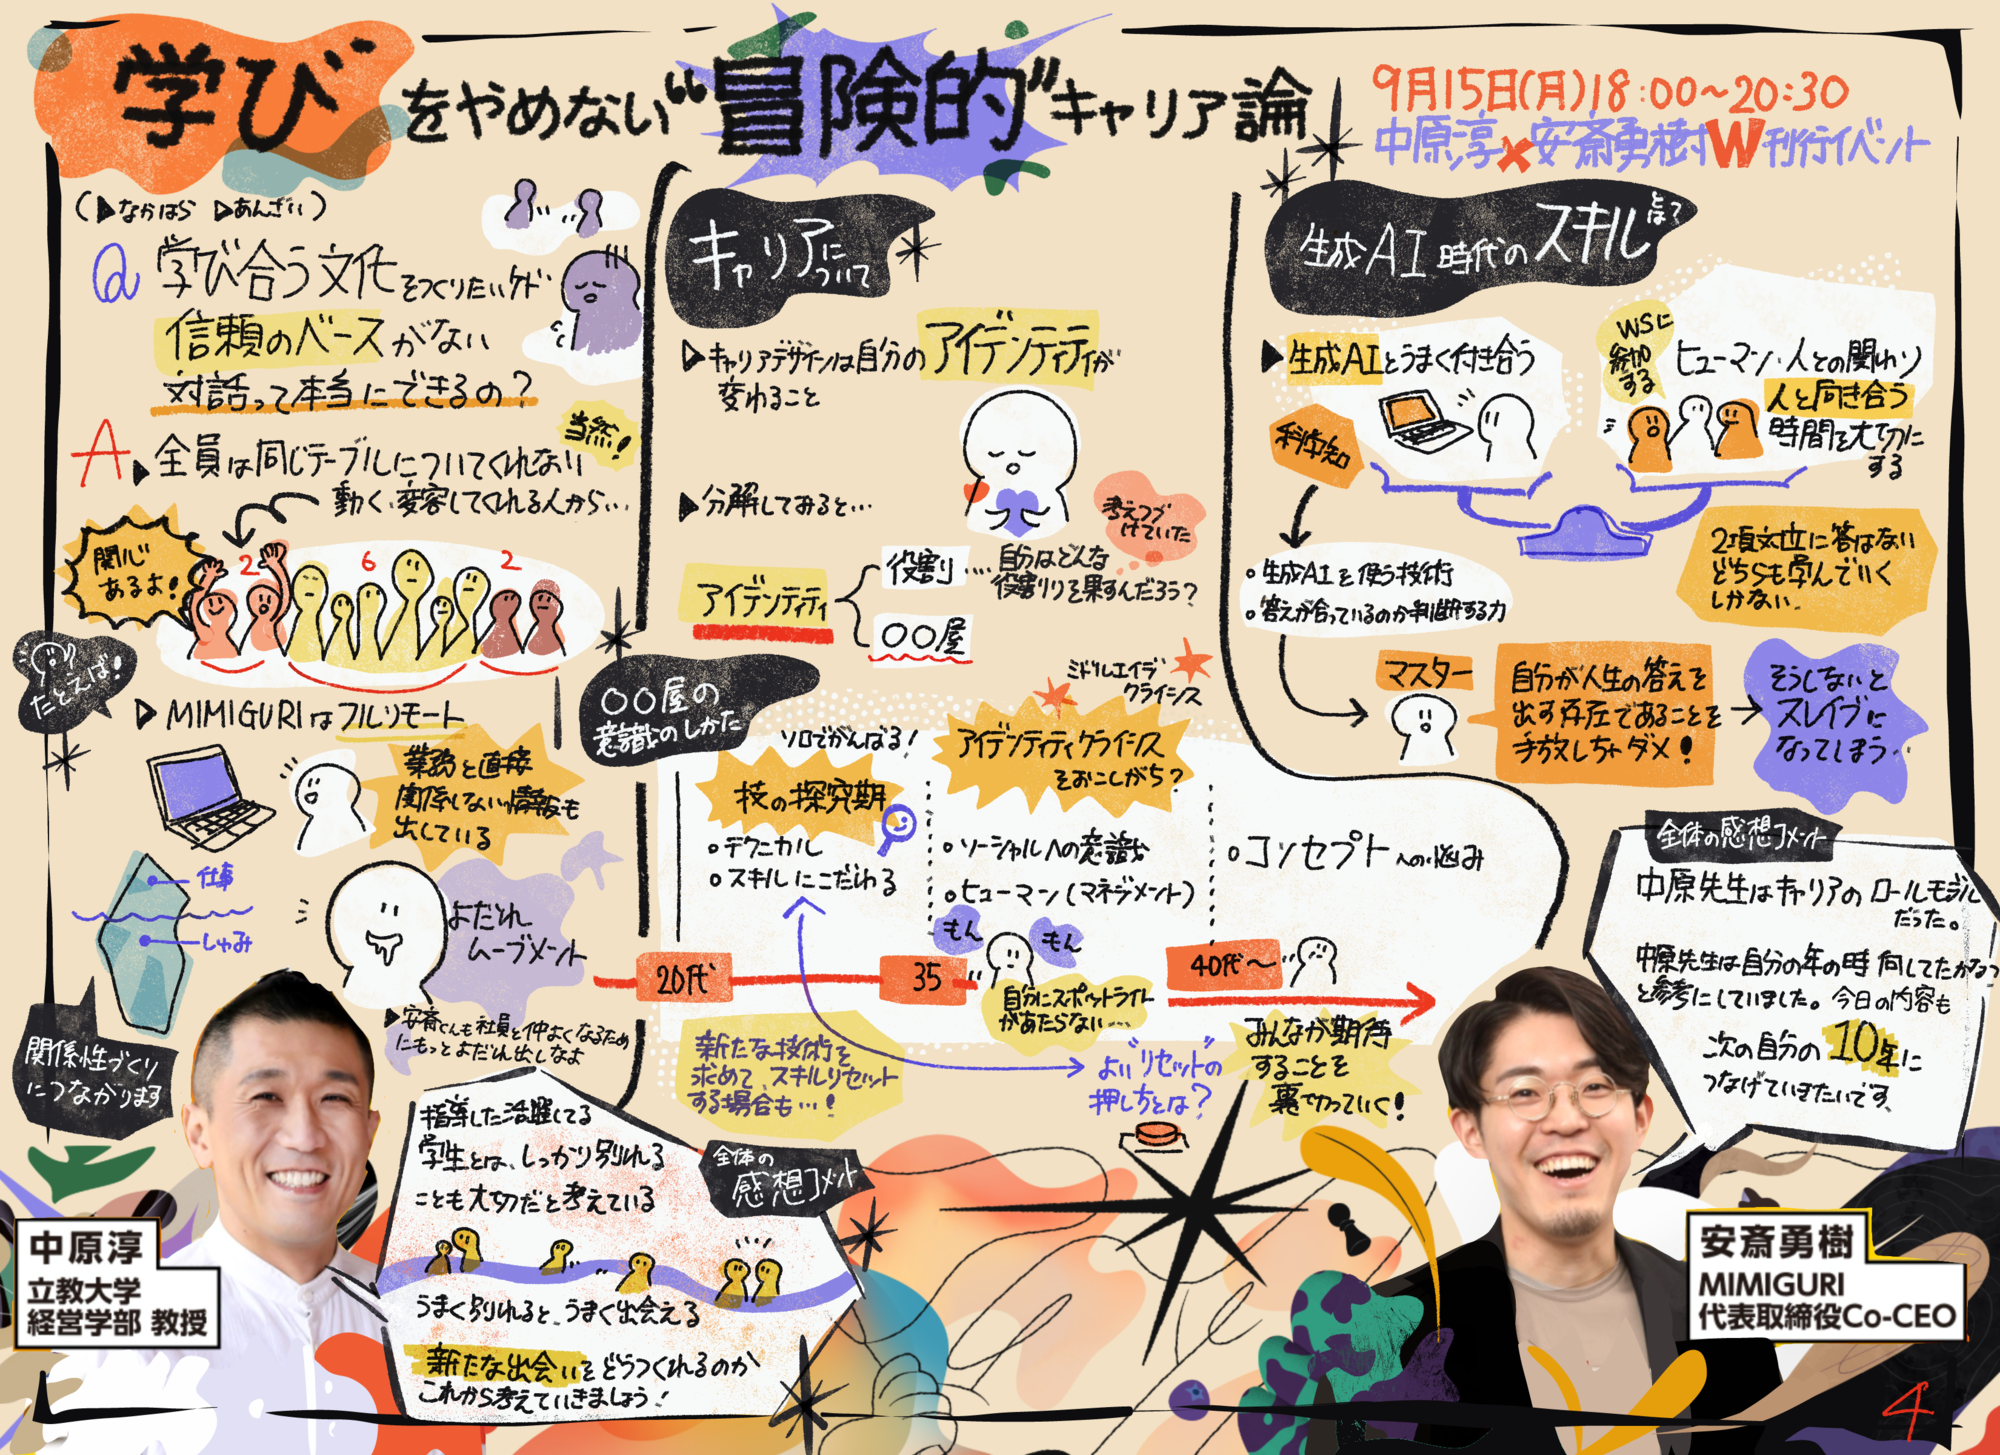 学びをやめない“冒険的”キャリア論
9月15日(月)18:00〜20:30
中原淳×安斎勇樹W刊行イベント
(▶なかはら ▷あんざい)
Q 学び合う文化をつくりたいケド
信頼のベースがない
対話って本当にできるの?
A ▶全員は同じテーブルについてくれない
当然!
動く、変容してくれる人から...
関心
あるよ!
2 6 2
たとえば!
▷MIMIGURIはフルリモート
業務と直接
関係しない情報も
出している
仕事
しゅみ
よだれ
ムーブメント
関係性づくり
につながります
▶安斎くんも社員と仲よくなるため
にもっとよだれ出しなよ
キャリアに
ついて
▷キャリアデザインは自分のアイデンティティが
変わること
▶分解してみると...
アイデンティティ
役割...自分はどんな
役割りを果すんだろう?
考えつづ
けていた
〇〇屋
〇〇屋の
意識のしかた
ミドルエイジ
クライシス
ソロでがんばる!
技の探究期
アイデンティティクライシス
をおこしがち?
○テクニカル
○スキルにこだわる
○ソーシャルへの意識
○ヒューマン(マネジメント)
○コンセプトへの悩み
もん
もん
20代
35
40代〜
自分にスポットライト
があたらない...
新たな技術を
求めて、スキルリセット
する場合も...!
よい“リセット”の
押し方とは?
みんなが期待
することを
裏切っていく!
生成AI時代のスキルとは?
▶生成AIとうまく付き合う
WSに
参加
する
ヒューマン・人との関わり
人と向き合う
時間を大切に
する
科学知
2項対立に答はない
どちらも学んでいく
しかない.
○生成AIを使う技術
○答えが合っているのか判断する力
マスター
自分が人生の答えを
出す存在であることを
手放しちゃダメ!
そうしないと
スレイブに
なってしまう..
全体の感想コメント
中原先生はキャリアのロールモデル
だった。
中原先生は自分の年の時何してたかな?
と参考にしていました。今日の内容も
次の自分の10年に
つなげていきたいです、
全体の
感想コメント
指導した活躍してる
学生とは、しっかり別れる
ことも大切だと考えている
うまく別れると、うまく出会える
新たな出会いをどうつくれるのか
これから考えていきましょう!
中原淳
立教大学
経営学部 教授
安斎勇樹
MIMIGURI
代表取締役Co-CEO
4